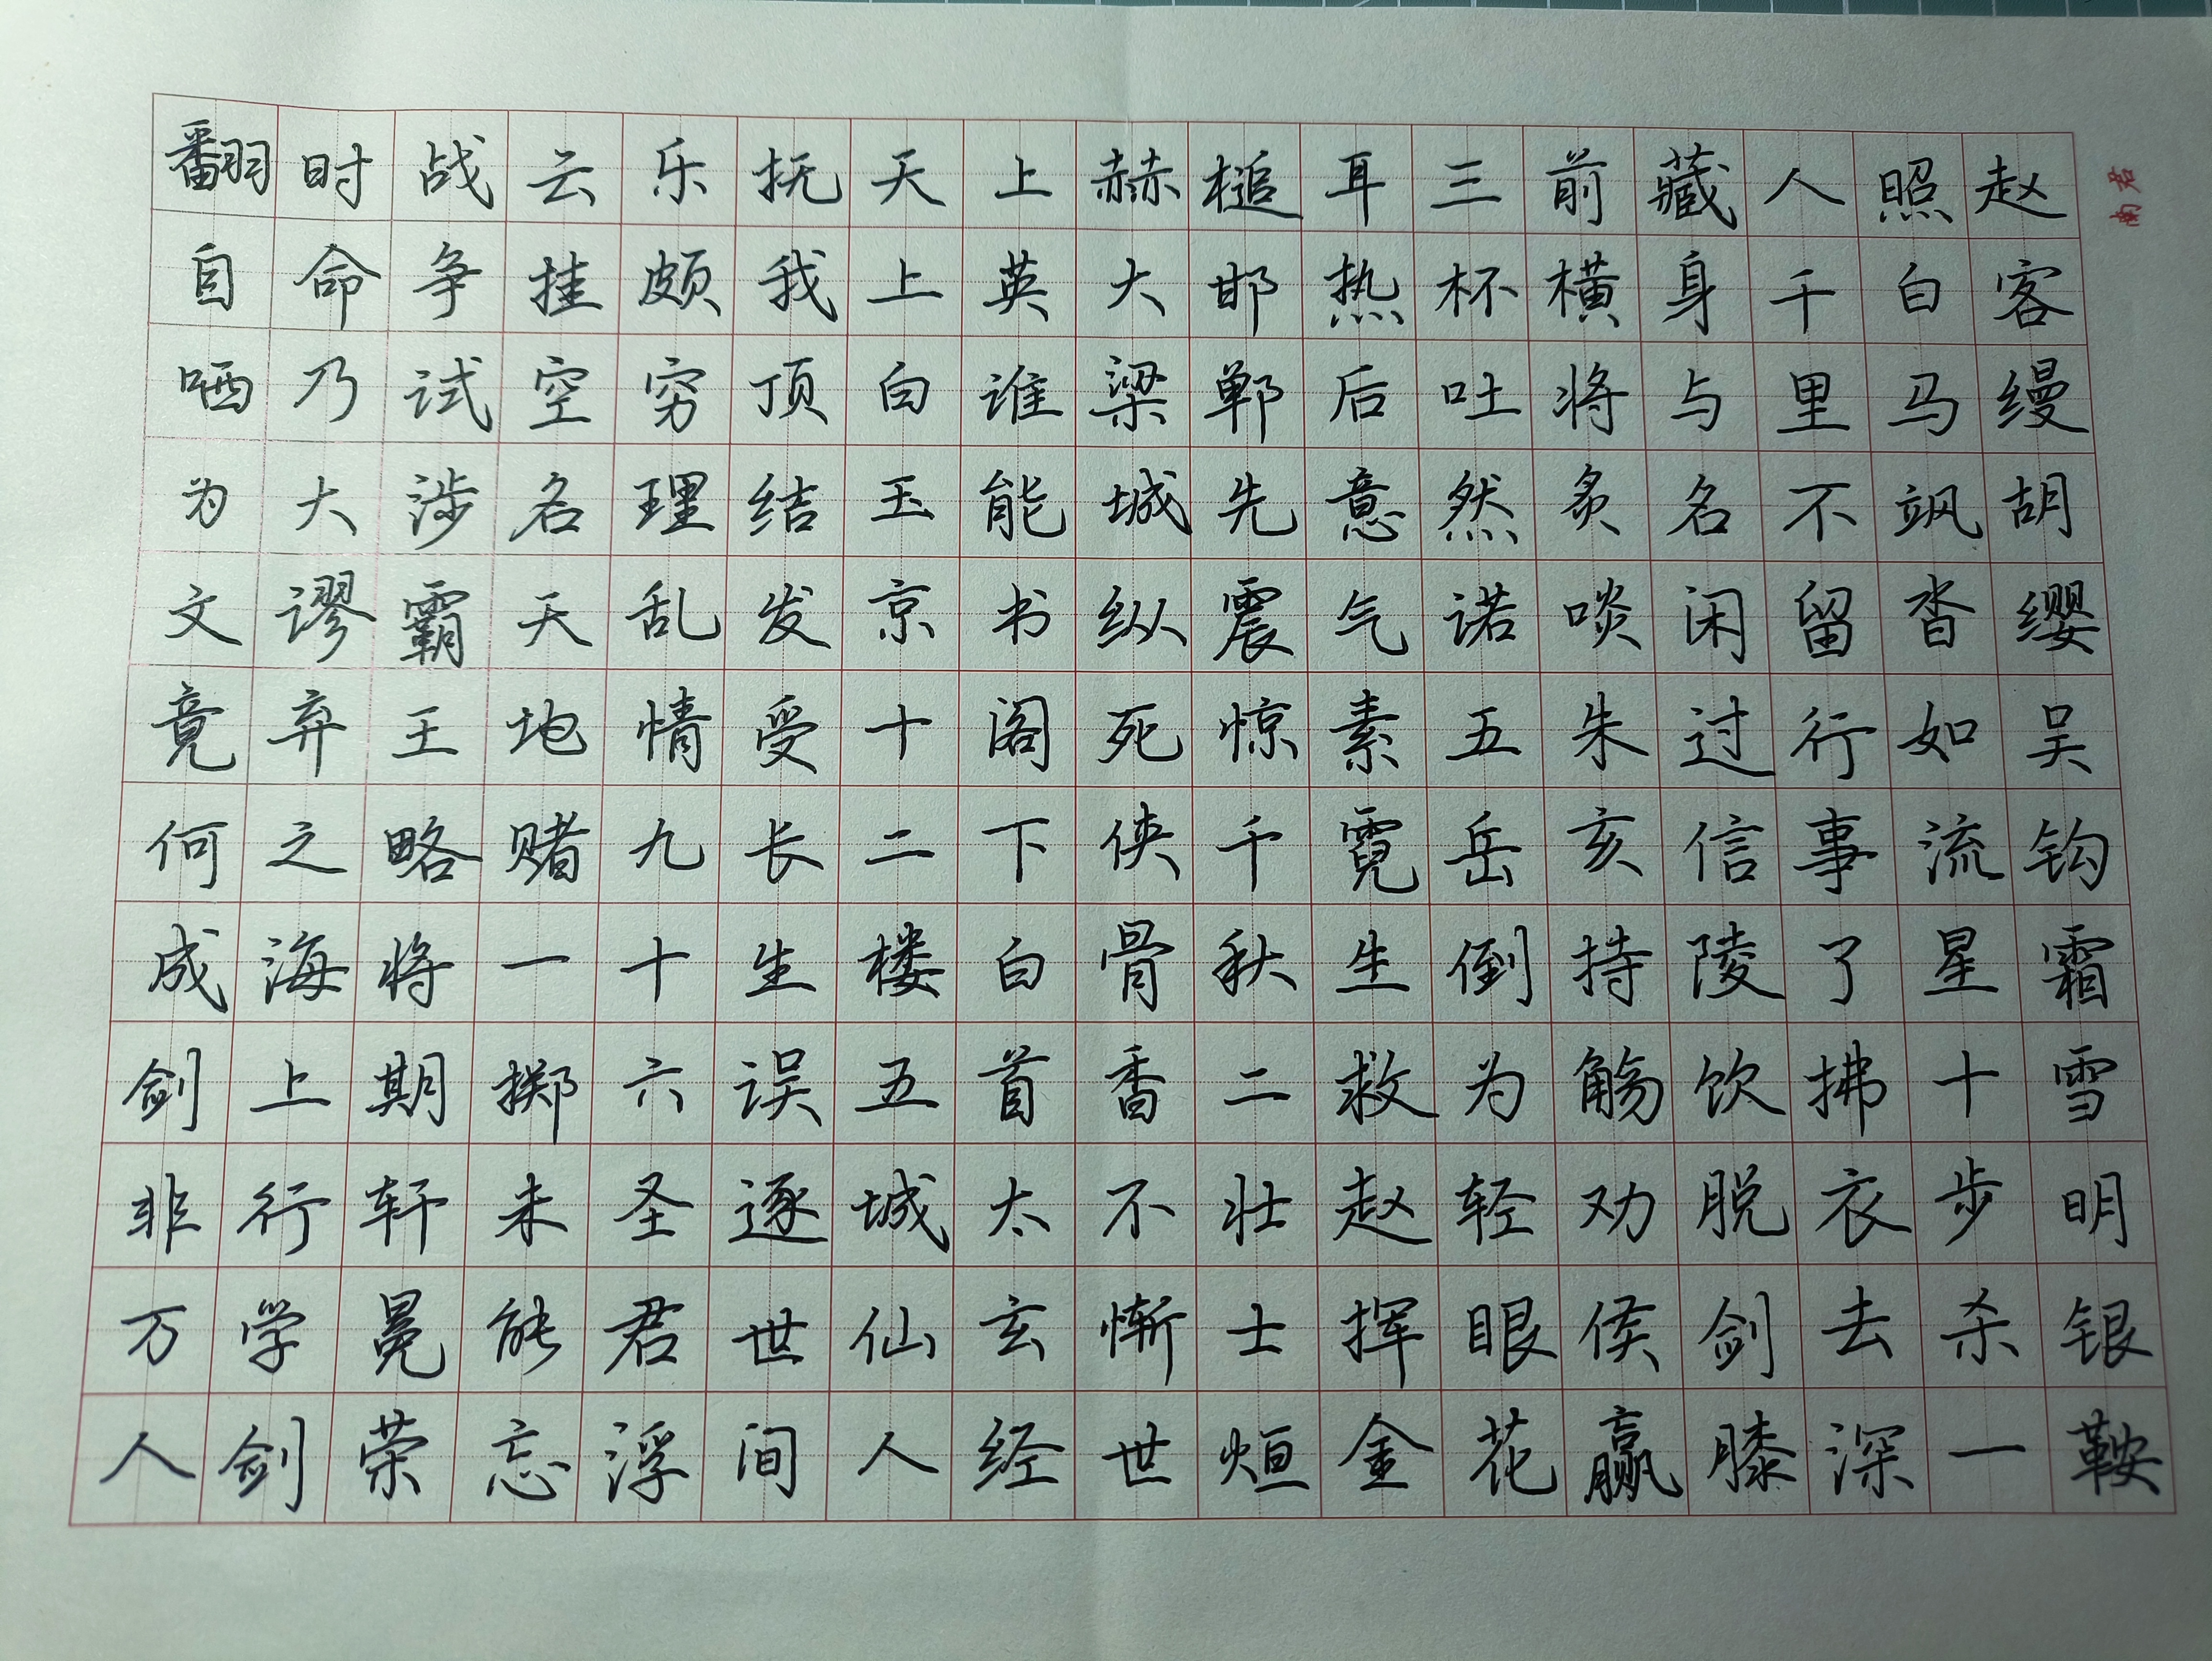 君南
赵客缦胡缨吴钩霜雪明银鞍
照白马飒沓如流星十步杀一
人千里不留行事了拂衣去深
藏身与名闲过信陵饮脱剑膝
前横将炙啖朱亥持觞劝侯赢
三杯吐然诺五岳倒为轻眼花
耳热后意气素霓生救赵挥金
槌邯郸先震惊千秋二壮士烜
赫大梁城纵死侠骨香不惭世
上英谁能书阁下白首太玄经
天上白玉京十二楼五城仙人
抚我顶结发受长生误逐世间
乐颇穷理乱情九十六圣君浮
云挂空名天地赌一掷未能忘
战争试涉霸王略将期轩冕荣
时命乃大谬弃之海上行学剑
翻自哂为文竟何成剑非万人